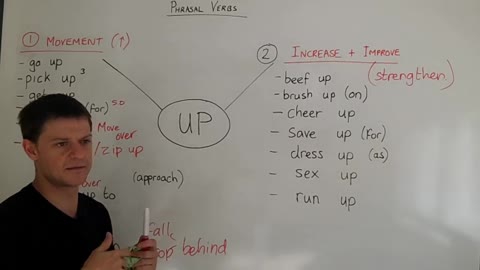 PHRASAL VERBS
① MOVEMENT (↑)
- go up
- pick up ³
(for) so
Move over
/zip up
over
up to
(approach)
fall
behind
UP
② INCREASE + IMPROVE
- beef up (strengthen)
- brush up (on)
- Cheer up
- Save up (for)
- dress up (as)
- sex up
- run up